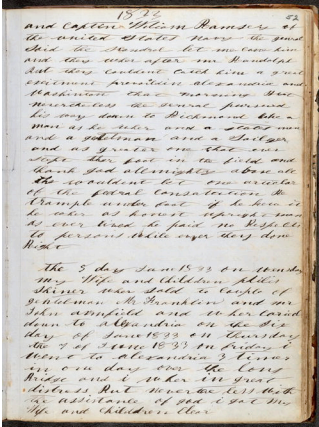 1833
52
and Capton William Ramsey of
the united States Navy the genral
Said the Scundrel let me Came him
and they wher after mr Randolph
but they couldent Catch him a great
between alexandria and
Washington that morning Here
nevercheless the genral pursued
his way down to Richmond like a
man as he wher and a states man
and a gentelman and a Soilger
and as greater one that ever
stept ther foot in the field and
thank god allmighty above all
He wouldent let one article
of the fedral Consatution be
trample under foot if he knew it
he wher as honest upright man
As ever lived he paid no Respects
to persons while ever they done
Right
the 5 day June 1833 on wensday
my Wife and Children
Shiner wher sold to Couple of
gentelman Mr Franklin and mr
John armfield and wher caried
down to alexandria on the Six
day of June 1833 on thursday
the 7 of June 1833 on friday i
went to alexandria 3 times
in one day over the long
Bridge and i wher in great
distress But nevertheless with
the assistance of god i got my
Wife and Children Clear